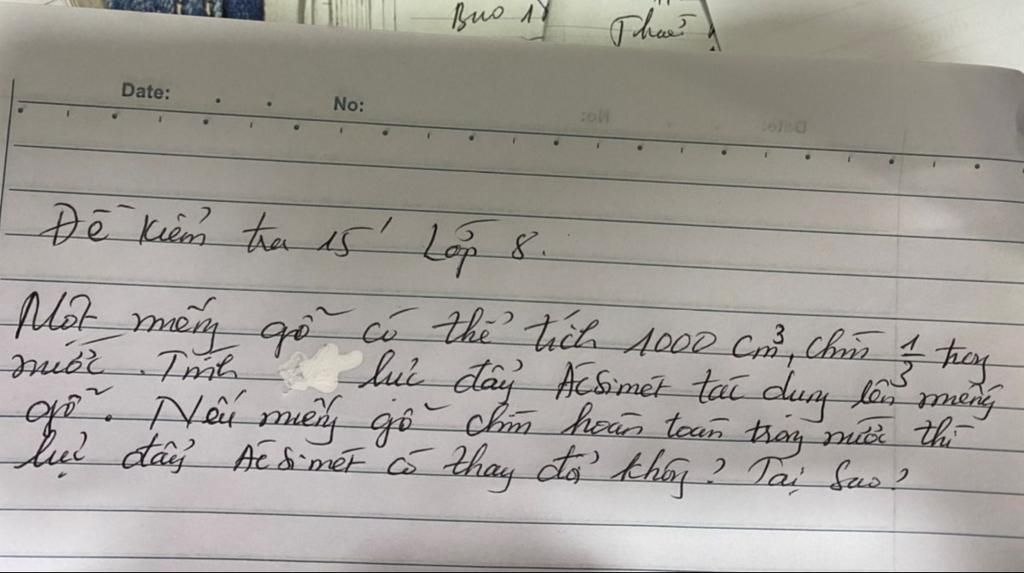 Buo 1
Thuế
Date:
No:
Đề kiểm tra 15' Lớp 8.
Một miếng gỗ có thể tích 1000 cm³, chìm 1/3 trong
nước. Tính lực đẩy Ácsimét tác dụng lên miếng
gỗ. Nếu miếng gỗ chìm hoàn toàn trong nước thì
lực đẩy Ácsimét có thay đổi không? Tại sao?